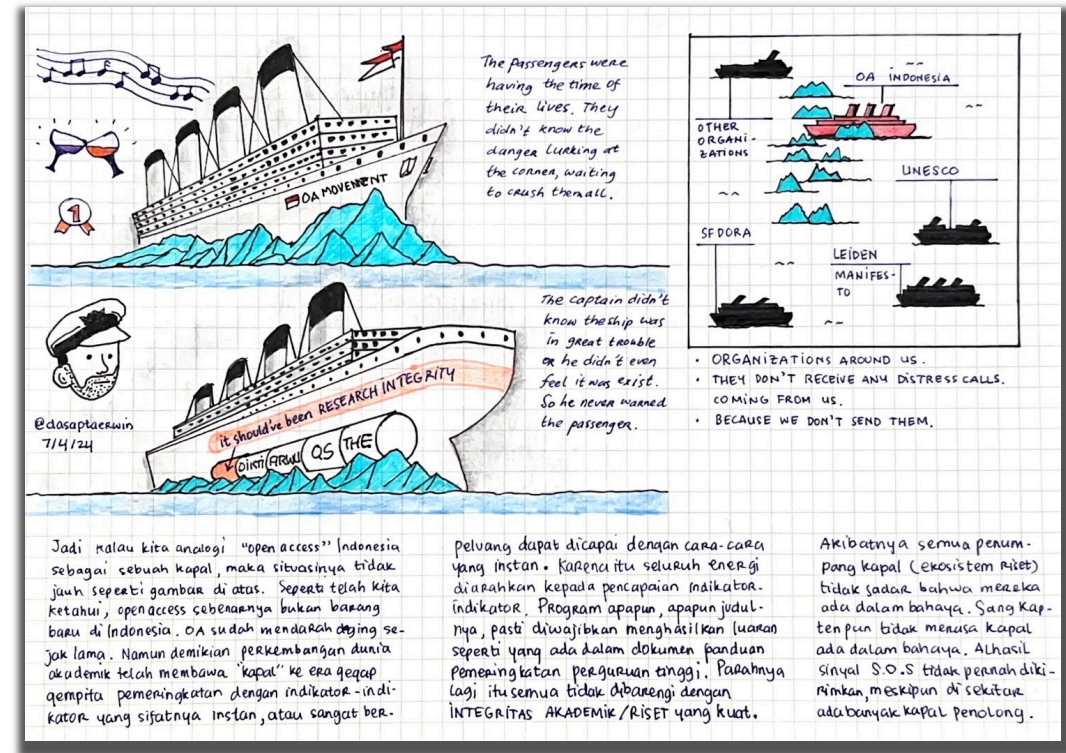 OA MOVEMENT
1
The passengers were
having the time of
their lives. They
didn't know the
danger lurking at
the corner, waiting
to crush them all.
OA INDONESIA
OTHER
ORGANI-
ZATIONS
UNESCO
SFDORA
LEIDEN
MANIFES-
TO
• ORGANIZATIONS AROUND US.
• THEY DON'T RECEIVE ANY DISTRESS CALLS.
COMING FROM US.
• BECAUSE WE DON'T SEND THEM.
The captain didn't
know the ship was
in great trouble
or he didn't even
feel it was exist.
So he never warned
the passenger.
it should've been RESEARCH INTEGRITY
DIKTI ARWU QS THE
@dasaptaerwin
7/4/24
Jadi kalau kita analogi "open access" Indonesia
sebagai sebuah kapal, maka situasinya tidak
jauh seperti gambar di atas. Seperti telah kita
ketahui, open access sebenarnya bukan barang
baru di Indonesia. OA sudah mendarah daging se-
jak lama. Namun demikian perkembangan dunia
akademik telah membawa "kapal" ke era gegap
gempita pemeringkatan dengan indikator-indi-
kator yang sifatnya instan, atau sangat ber-
peluang dapat dicapai dengan cara-cara
yang instan. Karena itu seluruh energi
diarahkan kepada pencapaian indikator-
indikator. Program apapun, apapun judul-
nya, pasti diwajibkan menghasilkan luaran
seperti yang ada dalam dokumen panduan
pemeringkatan perguruan tinggi. Parahnya
lagi itu semua tidak dibarengi dengan
INTEGRITAS AKADEMIK/RISET yang kuat.
Akibatnya semua penum-
pang kapal (ekosistem riset)
tidak sadar bahwa mereka
ada dalam bahaya. Sang kap-
ten pun tidak merasa kapal
ada dalam bahaya. Alhasil
sinyal S.O.S tidak pernah diki-
rimkan, meskipun di sekitar
ada banyak kapal penolong.